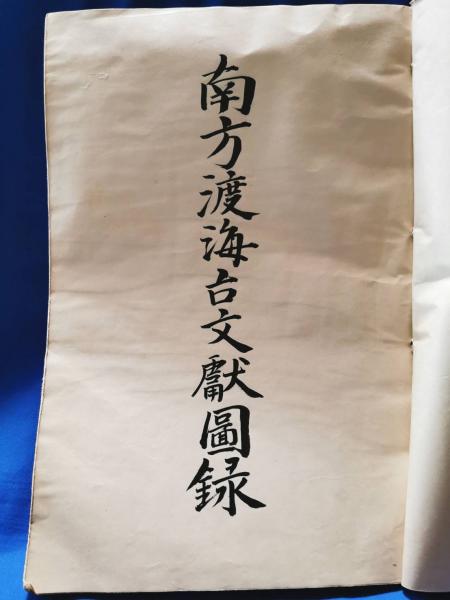 南方渡海古文獻圖録